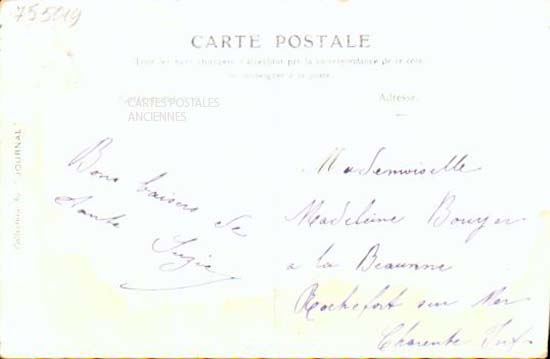 75549
CARTE POSTALE
Tous les pays étrangers n'acceptent pas la correspondance de ce côté
se renseigner à la poste
CARTES POSTALES
ANCIENNES
Adresse
JOURNAL
Bons baisers de
tante Suzie
Mademoiselle
Madeleine Bouyer
a la Beaunne
Rochefort sur Mer
Charente Inf